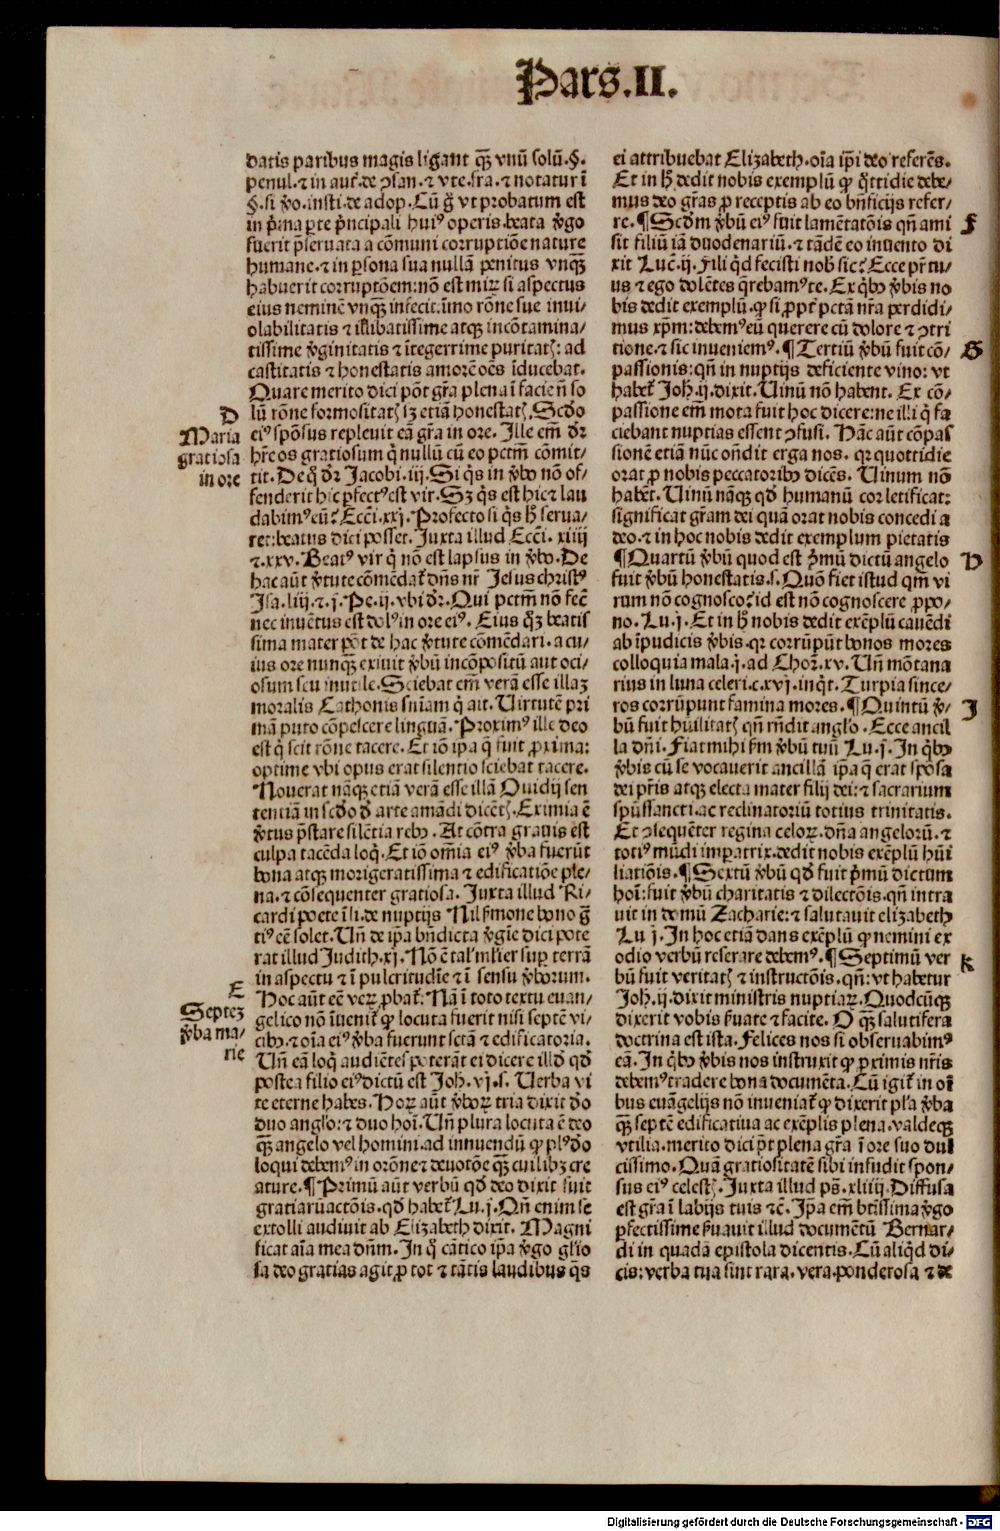 Pars.II.
datis paribus magis ligant qȝ vnū solū.§.
penul.⁊ in aut̄.de ꝯsan.⁊ vte.fra.⁊ notatur ī
§.si ꝟo.insti.de adop.Cū g̊ vt probatum est
in p̄ma ꝑte p̄ncipali huiꝰ operis.beata ꝟgo
fuerit p̄seruata a cōmuni corruptiōe nature
humane.⁊ in ꝑsona sua nullā penitus vnqȝ
habuerit corruptōem:nō est miꝝ si aspectus
eius neminē vnqȝ infecit.īmo rōne sue inui-
olabilitatis ⁊ illibatissime atqȝ incōtamina-
tissime ꝟginitatis ⁊ ītegerrime puritatꝭ: ad
castitatis ⁊ honestatis amorē oēs īducebat.
Quare merito dici pōt gr̄a plena ī facie n̄ so
D
lū rōne formositatꝭ sȝ etiā honestatꝭ. Scd̄o
Maria
eiꝰ spōsus repleuit eā gr̄a in ore. Ille em̄ dr̄
gratiosa
hr̄e os gratiosum q̇ nullū cū eo pctm̄ cōmit-
in ore
tit. De q̊ dr̄ Jacobi.iij. Si q̇s in ꝟbo nō of-
fenderit hic ꝑfectꝰ est vir. Sȝ q̇s est hic ⁊ lau
dabimꝰ eū? Ecci.xxj. Profecto si q̇s h̄ serua-
ret:beatus dici posset. Juxta illud Ecci. xiiij
⁊.xxv. Beatꝰ vir q̇ nō est lapsus in ꝟbo. De
hac aūt ꝟtute cōmēdat̄ dn̄s nr̄ Jesus christꝰ
Isa.liij.⁊.j. Pe.ij.vbi dr̄. Qui pctm̄ nō fec̄
nec inuētus est dolꝰ in ore eiꝰ. Eius qȝ beatis
sima mater pōt de hac ꝟtute cōmēdari.a cu-
ius ore nunqȝ exiuit ꝟbū incōpositū aut oci-
osum seu inutile. Sciebat em̄ verā esse illaȝ
moralis Cathonis sniam q̇ ait. Virtutē pri
mā puto cōpescere linguā. Proximꝰ ille deo
est q̇ scit rōne tacere. Et iō ip̄a q̄ fuit ꝓxima:
optime vbi opus erat silentio sciebat tacere.
Nouerat nāqȝ etiā verā esse illā Ouidij sen
tentiam in scd̄o d̄ arte amādi dicētꝭ. Eximia ē
ꝟtus p̄stare silētia rebꝰ. At cōtra grauis est
culpa tacēda loq̇. Et iō om̄ia eiꝰ ꝟba fuerūt
bona atqȝ morigeratissima ⁊ edificatiōe ple-
na.⁊ cōsequenter gratiosa. Juxta illud Ri-
cardi poete ī li.de nuptijs Nil s̄mone bono gr̄
tiꝰ eē solet. Vn̄ de ip̄a bn̄dicta ꝟgīe dici pote
rat illud Judith.xj. Nō ē tal̓ ml̓ier suꝑ terrā
in aspectu ⁊ ī pulcritudīe ⁊ ī sensu ꝟborum.
E
Hoc aūt eē veꝝ ꝓbat̄: Nā ī toto textu euan-
Septeȝ
gelico nō īuenit̄ ꝙ locuta fuerit nisi septē vi-
ꝟba ma-
cibꝰ.⁊ oīa eiꝰ ꝟba fuerunt sctā ⁊ edificatoria.
rie
Vn̄ eā loq̇ audiētes poterāt ei dicere illd̄ qd̄
postea filio eiꝰ dictū est Joh. vj. s. Verba vi
te eterne habes. Hoꝝ aūt ꝟboꝝ tria dixit d̄o
duo angl̓o:⁊ duo hoī. Vn̄ plura locuta ē deo
qȝ angelo vel homini.ad innuendū ꝙ plꝰ d̄o
loqui debemꝰ in orōne ⁊ deuotōe qȝ cuilibȝ cre
ature. ¶ Primū aūt verbū qd̄ deo dixit fuit
gratiaꝝ actōis.qd̄ habet̄ Lu.j. Qn̄ enim se
extolli audiuit ab Elizabeth dixit. Magni
ficat aīa mea dn̄m. In q̊ cātico ip̄a ꝟgo gl̓io
sa deo gratias agit ꝓ tot ⁊ tātis laudibus q̇s
ei attribuebat Elizabeth.oīa ip̄i deo referēs.
Et in h̄ dedit nobis exemplū ꝙ q̊ttidie debe-
mus deo gr̄as ꝓ receptis ab eo bn̄ficijs refer-
re. ¶ Scd̄m ꝟbū eiꝰ fuit lamētatōis qn̄ ami
F
sit filiū iā duodenariū.⁊ tādē eo inuento di
xit Luc̄.ij. Fili q̇d fecisti nob̄ sic? Ecce pr̄ tu-
us ⁊ ego dolētes q̄rebamꝰ te. Ex q̇bꝰ ꝟbis no
bis dedit exemplū.ꝙ si ꝓpt̄ pctā nr̄a perdidi-
mus xp̄m: debemꝰ eū querere cū dolore ⁊ ꝯtri
tione.⁊ sic inueniemꝰ. ¶ Tertiū ꝟbū fuit cō-
G
passionis: qn̄ in nuptijs deficiente vino: vt
habet̄ Joh̄.ij.dixit. Vinū nō habent. Ex cō-
passione em̄ mota fuit hoc dicere:ne illi q̇ fa
ciebant nuptias essent ꝯfusi. Hāc aūt cōpas
sionē etiā nūc ōndit erga nos. qꝛ quottidie
orat ꝓ nobis peccatoribꝰ dicēs. Vinum nō
habēt. Vinū nāqȝ qd̄ humanū cor letificat:
significat gr̄am dei quā orat nobis concedi a
deo.⁊ in hoc nobis dedit exemplum pietatis
¶ Quartū ꝟbū quod est p̄mū dictū angelo
H
fuit ꝟbū honestatis.s. Quō fiet istud qm̄ vi
rum nō cognosco? id est nō cognoscere ꝓpo-
no. Lu.j. Et in h̄ nobis dedit exēplū cauēdi
ab īpudicis ꝟbis.qꝛ corrūpūt bonos mores
colloquia mala.j.ad Chor̄.xv. Vn̄ mōtana
rius in luna celeri.c.xvj.inq̇t. Turpia since-
ros corrūpunt famina mores. ¶ Quintū ꝟ-
J
bū fuit hūilitatꝭ qn̄ rn̄dit angl̓o. Ecce ancil
la dn̄i. Fiat mihi s̄m ꝟbū tuū Lu.j. In q̇bꝰ
ꝟbis cū se vocauerit ancillā ip̄a q̄ erat spōsa
dei pr̄is atqȝ electa mater filij dei:⁊ sacrarium
spūssancti.ac reclinatoriū totius trinitatis.
Et ꝯsequēter regina celoꝝ.dn̄a angeloꝝ.⁊
totiꝰ mūdi imꝑatrix.dedit nobis exēplū hūi
liatiōis. ¶ Sextū ꝟbū qd̄ fuit p̄mū dictum
hoī:fuit ꝟbū charitatis ⁊ dilectōis.qn̄ intra
uit in domū Zacharie:⁊ salutauit elizabeth
Lu j. In hoc etiā dans exēplū ꝙ nemini ex
odio verbū reserare debemꝰ. ¶ Septimū ver
K
bū fuit veritatꝭ ⁊ instructōis.qn̄: vt habetur
Joh̄.ij.dixit ministris nuptiaꝝ. Quodcūqȝ
dixerit vobis ẜuate ⁊ facite. O qȝ salutifera
doctrina est ista. Felices nos si obseruabimꝰ
eā. In q̇bꝰ ꝟbis nos instruxit ꝙ ꝓximis nr̄is
debemꝰ tradere bona documēta. Cū igit̄ in oī
bus euāgelijs nō inueniat̄ ꝙ dixerit pl̓a ꝟba
qȝ septē edificatiua ac exēplis plena.valdeqȝ
vtilia.merito dici p̄t plena gr̄a ī ore suo dul
cissimo. Quā gratiositatē sibi infudit spon-
sus eiꝰ celestꝭ. Juxta illud ps̄.xliiij. Diffusa
est gr̄a ī labijs tuis ⁊c̄. Ip̄a em̄ btīssima ꝟgo
ꝑfectissime ẜuauit illud documētū Bernar-
di in quadā epistola dicentis. Cū aliq̇d di-
cis: verba tua sint rara. vera.ponderosa ⁊ de
Digitalisierung gefördert durch die Deutsche Forschungsgemeinschaft - DFG